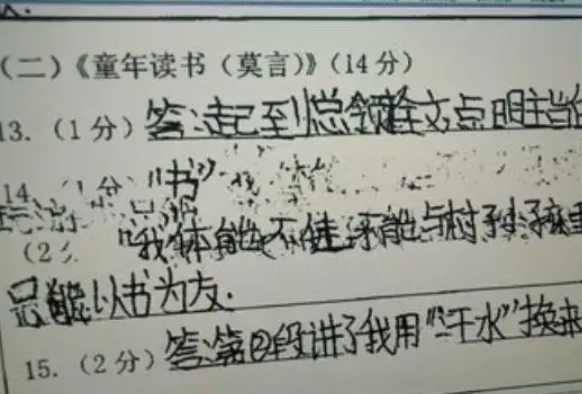 (二)《童年读书(莫言)》(14分)
13.(1分)答:起到总领全文,点明主旨
14.(1分)"书"
(2分 "我体能不健,不能与村子
只能以书为友.
15.(2分)答:第②段讲了我用"汗水"换来